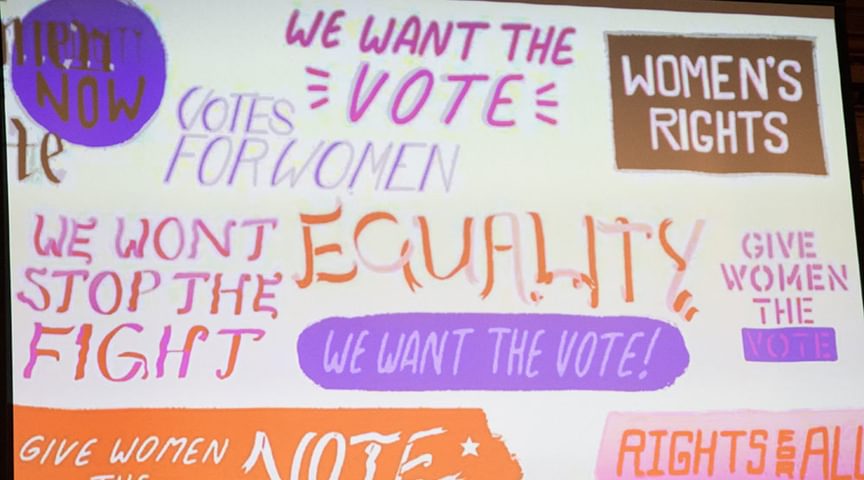 NOW
te
VOTES
FOR WOMEN
WE WANT THE
VOTE
WOMEN'S
RIGHTS
WE WONT
STOP THE
FIGHT
EQUALITY
GIVE
WOMEN
THE
VOTE
WE WANT THE VOTE!
GIVE WOMEN
THE
VOTE
RIGHTS FOR ALL